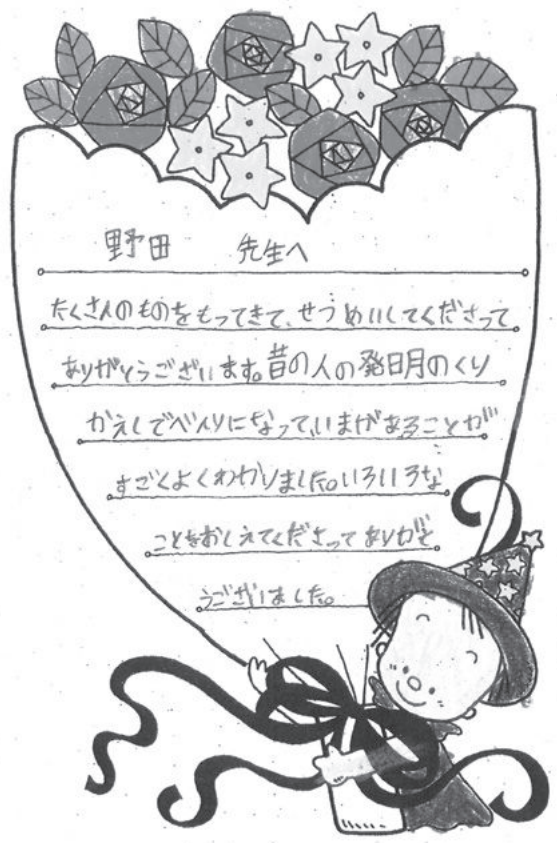 野田 先生へ
たくさんのものをもってきて、せつめいしてくださって
ありがとうございます。昔の人の発明のくり
かえしでべんりになって、いまがあることが
すごくよくわかりました。いろいろな
ことをおしえてくださってありがと
うございました。